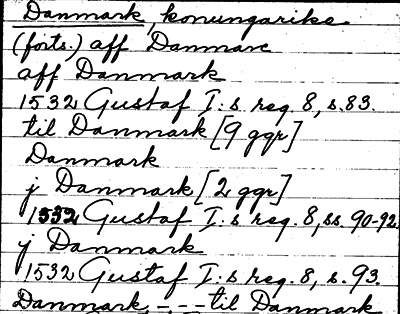 Danmark, konungarike
(forts.) aff Danmarc
aff Danmark
1532 Gustaf I:s reg. 8, s. 83.
til Danmark [9 ggr]
Danmark
j Danmark [2 ggr]
1532 Gustaf I:s reg. 8, ss. 90-92
j Danmark
1532 Gustaf I:s reg. 8, s. 93.
Danmark, - - - til Danmark